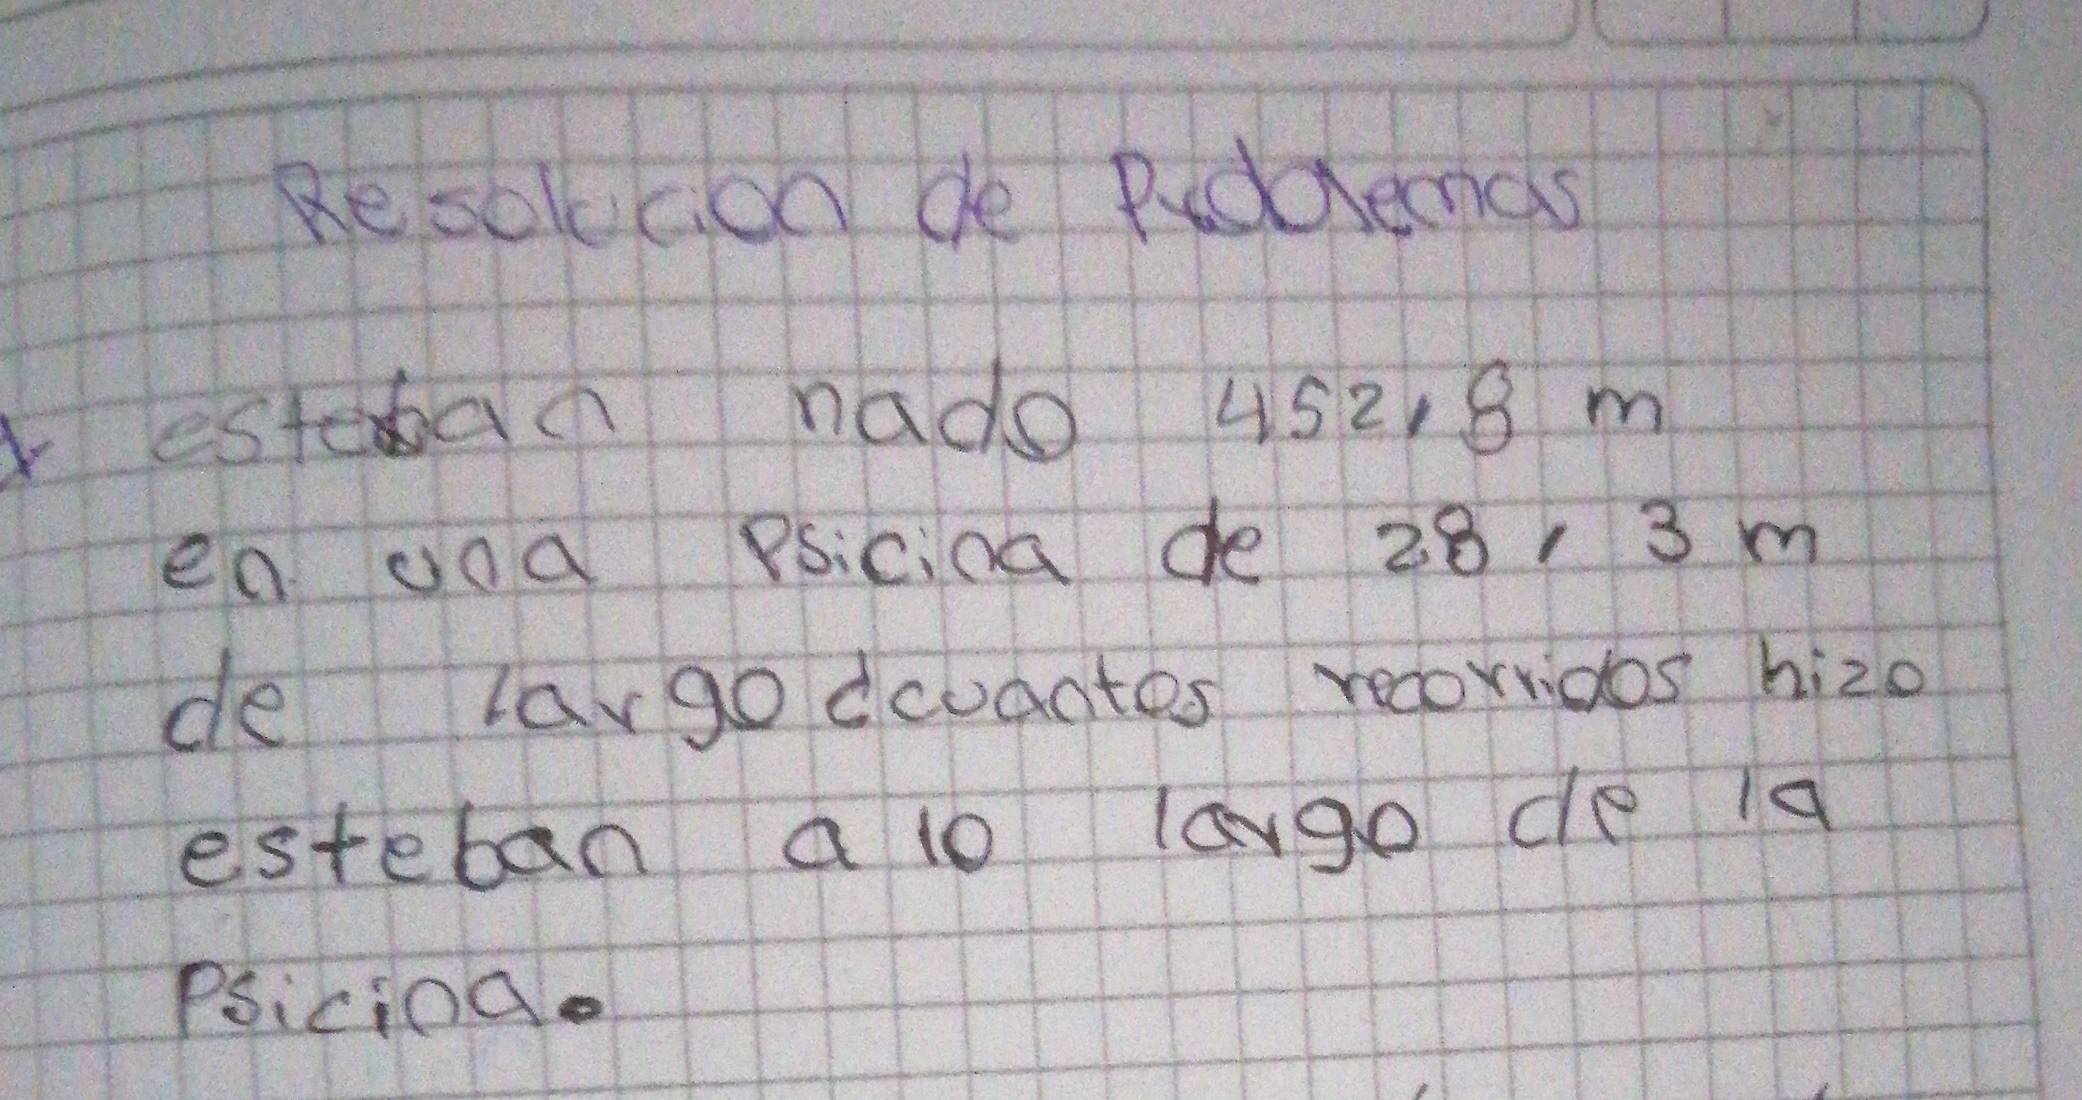 Resolucion de Problemas
esteban nado 452,8 m
en una Psicina de 28,3 m
de largo ¿cuantos recorridos hizo
esteban a lo largo de la
Psicina.